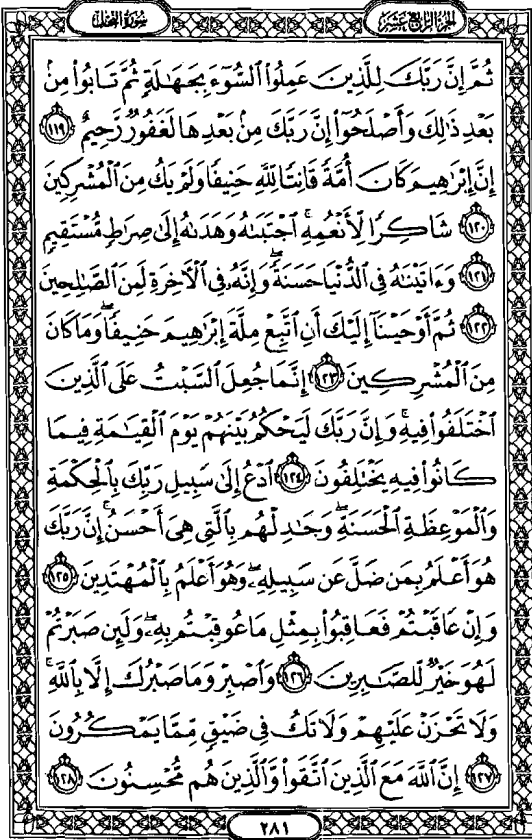 سورة النحل
الجزء الرابع عشر
ثُمَّ إِنَّ رَبَّكَ لِلَّذِينَ عَمِلُوا۟ ٱلسُّوٓءَ بِجَهَـٰلَةٍ ثُمَّ تَابُوا۟ مِنۢ
بَعْدِ ذَٰلِكَ وَأَصْلَحُوٓا۟ إِنَّ رَبَّكَ مِنۢ بَعْدِهَا لَغَفُورٌ رَّحِيمٌ ١١٩
إِنَّ إِبْرَٰهِيمَ كَانَ أُمَّةً قَانِتًا لِّلَّهِ حَنِيفًا وَلَمْ يَكُ مِنَ ٱلْمُشْرِكِينَ
١٢٠ شَاكِرًا لِّأَنْعُمِهِ ۚ ٱجْتَبَىٰهُ وَهَدَىٰهُ إِلَىٰ صِرَٰطٍ مُّسْتَقِيمٍ
١٢١ وَءَاتَيْنَـٰهُ فِى ٱلدُّنْيَا حَسَنَةً ۖ وَإِنَّهُۥ فِى ٱلْـَٔاخِرَةِ لَمِنَ ٱلصَّـٰلِحِينَ
١٢٢ ثُمَّ أَوْحَيْنَآ إِلَيْكَ أَنِ ٱتَّبِعْ مِلَّةَ إِبْرَٰهِيمَ حَنِيفًا ۖ وَمَا كَانَ
مِنَ ٱلْمُشْرِكِينَ ١٢٣ إِنَّمَا جُعِلَ ٱلسَّبْتُ عَلَى ٱلَّذِينَ
ٱخْتَلَفُوا۟ فِيهِ ۚ وَإِنَّ رَبَّكَ لَيَحْكُمُ بَيْنَهُمْ يَوْمَ ٱلْقِيَـٰمَةِ فِيمَا
كَانُوا۟ فِيهِ يَخْتَلِفُونَ ١٢٤ ٱدْعُ إِلَىٰ سَبِيلِ رَبِّكَ بِٱلْحِكْمَةِ
وَٱلْمَوْعِظَةِ ٱلْحَسَنَةِ ۖ وَجَـٰدِلْهُم بِٱلَّتِى هِىَ أَحْسَنُ ۚ إِنَّ رَبَّكَ
هُوَ أَعْلَمُ بِمَن ضَلَّ عَن سَبِيلِهِۦ ۖ وَهُوَ أَعْلَمُ بِٱلْمُهْتَدِينَ ١٢٥
وَإِنْ عَاقَبْتُمْ فَعَاقِبُوا۟ بِمِثْلِ مَا عُوقِبْتُم بِهِۦ ۖ وَلَئِن صَبَرْتُمْ
لَهُوَ خَيْرٌ لِّلصَّـٰبِرِينَ ١٢٦ وَٱصْبِرْ وَمَا صَبْرُكَ إِلَّا بِٱللَّهِ ۚ
وَلَا تَحْزَنْ عَلَيْهِمْ وَلَا تَكُ فِى ضَيْقٍ مِّمَّا يَمْكُرُونَ
١٢٧ إِنَّ ٱللَّهَ مَعَ ٱلَّذِينَ ٱتَّقَوا۟ وَّٱلَّذِينَ هُم مُّحْسِنُونَ ١٢٨
٢٨١